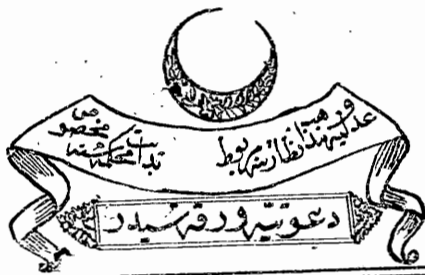 عدلیه و مذاهب نظارتنه مربوط بدایت محکمه‌سنه مخصوص
دعوتیه ورقه‌سیدر